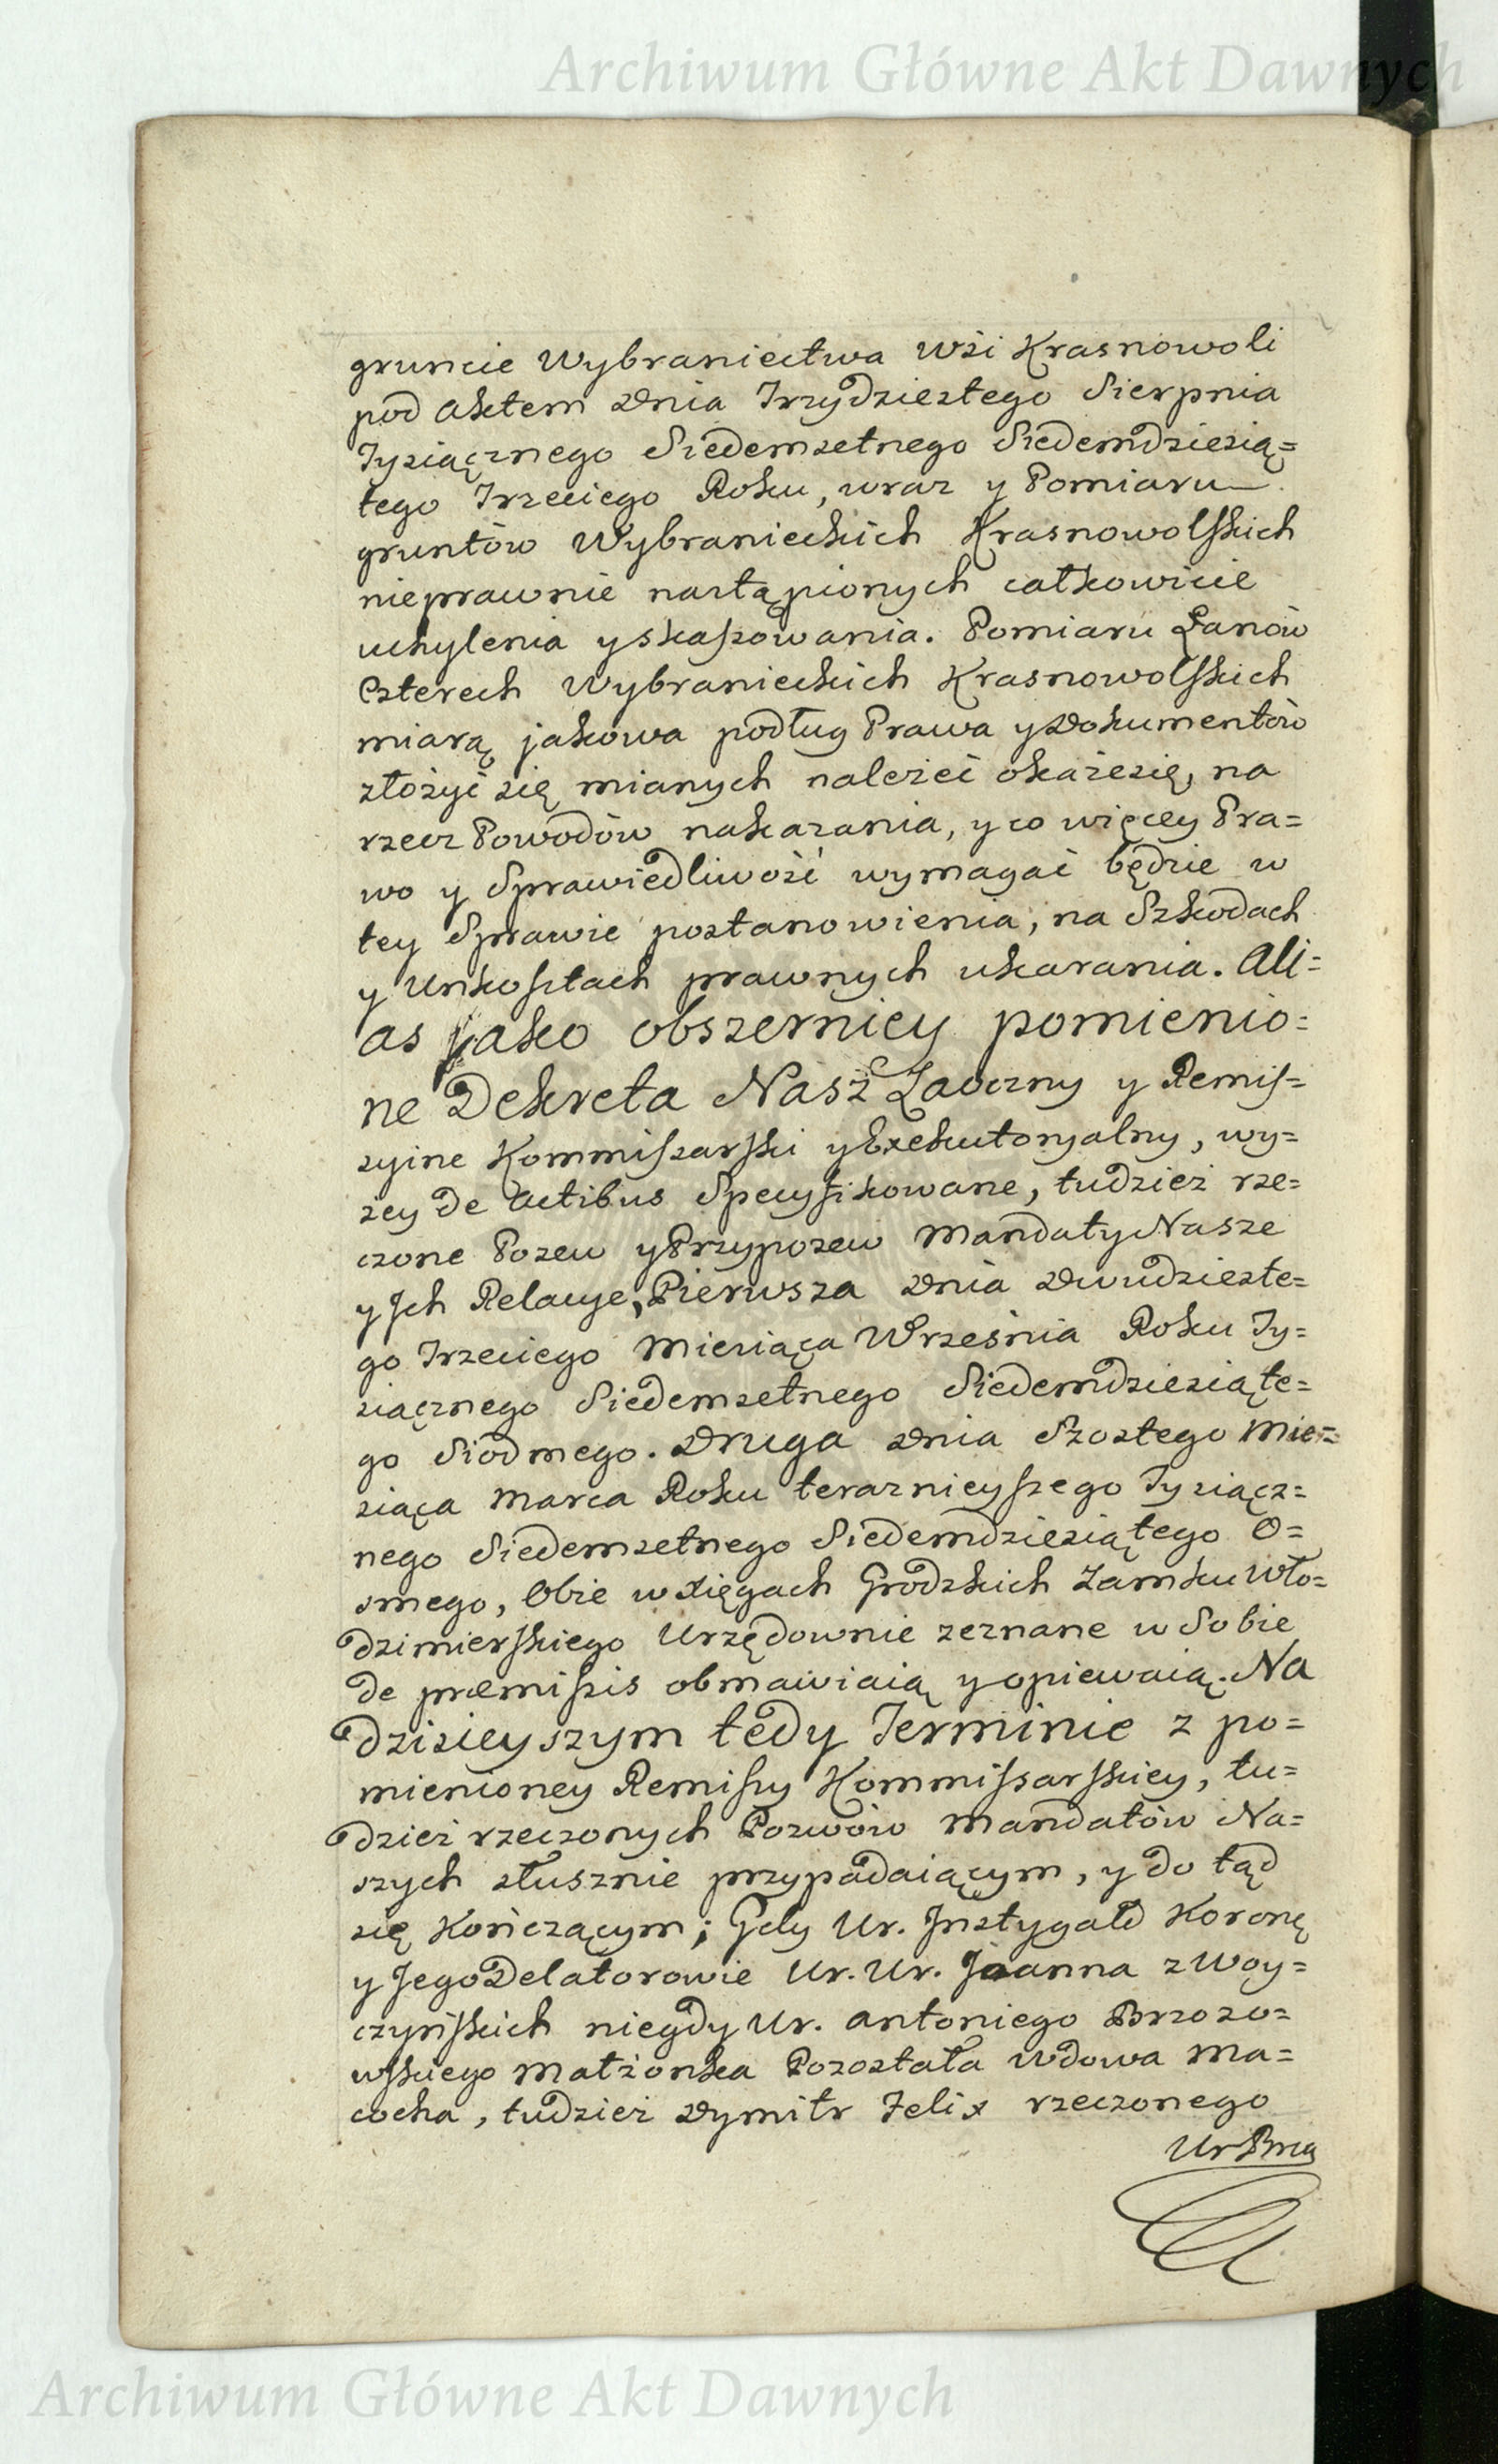 Archiwum Główne Akt Dawnych
gruncie Wybraniectwa Wsi Krasnowoli
pod Aktem Dnia Trzydziestego Sierpnia
Tysiącznego Siedemsetnego Siedemdziesią=
tego Trzeciego Roku, wraz y Pomiaru
gruntów Wybranieckich Krasnowolskich
nieprawnie nastąpionych całkowicie
uchylenia y skassowania. Pomiaru Łanów
Czterech Wybranieckich Krasnowolskich
miarą jakowa podług Prawa y Dokumentów
złożyć się mianych należeć okaże się, na
rzecz Powodów nakazania, y co więcey Pra=
wo y Sprawiedliwość wymagać będzie w
tey Sprawie postanowienia, na Szkodach
y Unkosztach prawnych ukarania. Ali=
as jako obszerniey pomienio=
ne Dekreta Nasz Zaoczny y Remis=
syine Kommissarski y Exekutoryalny, wy=
zey de Actibus Specyfikowane, tudzież rze=
czone Pozew y Przypozew Mandaty Nasze
y Jch Relacye, Pierwsza Dnia Dwudzieste=
go Trzeciego Miesiąca Września Roku Ty=
siącznego Siedemsetnego Siedemdziesiąte=
go Siodmego. Druga Dnia Szostego Mie=
siąca Marca Roku teraznieyszego Tysiącz=
nego Siedemsetnego Siedemdziesiątego O=
smego, Obie w Xięgach Grodzkich Zamku Wło=
dzimierskiego Urzędownie zeznane w Sobie
de præmissis obmawiaią y opiewaią. Na
dzisieyszym tedy Terminie z po=
mienioney Remissy Kommissarskiey, tu=
dzież rzeczonych Pozwów Mandatów Na=
szych słusznie przypadaiącym, y do tąd
się Kończącym; Gdy Ur. Jnstygator Koronę
y Jego Delatorowie Ur. Ur. Joanna z Woy=
czyńskich niegdy Ur. Antoniego Brzozo=
wskiego Małżonka Pozostała Wdowa Ma=
cocha, tudzież Dymitr Felix rzeczonego
Archiwum Główne Akt Dawnych